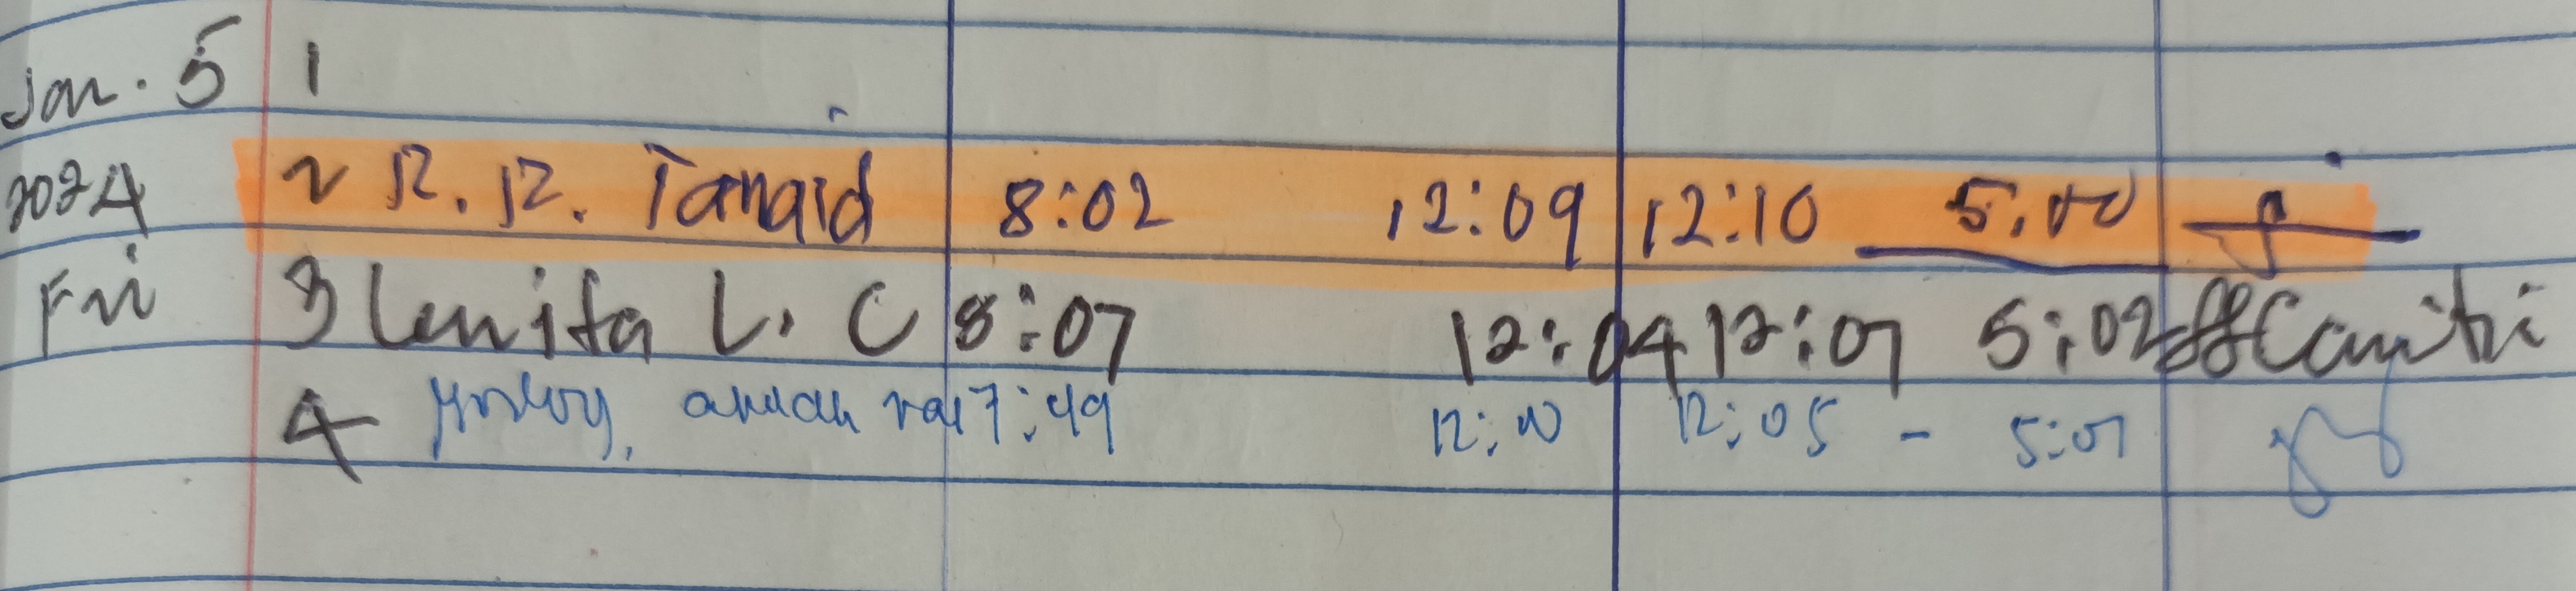 Jan. 5 1
2024 2 R. R. Tanaid 8:02 12:09 12:10 5:00
Fri 3 Lenita L. C 8:07 12:04 12:07 5:02
4 7:49 12:00 12:05 - 5:07